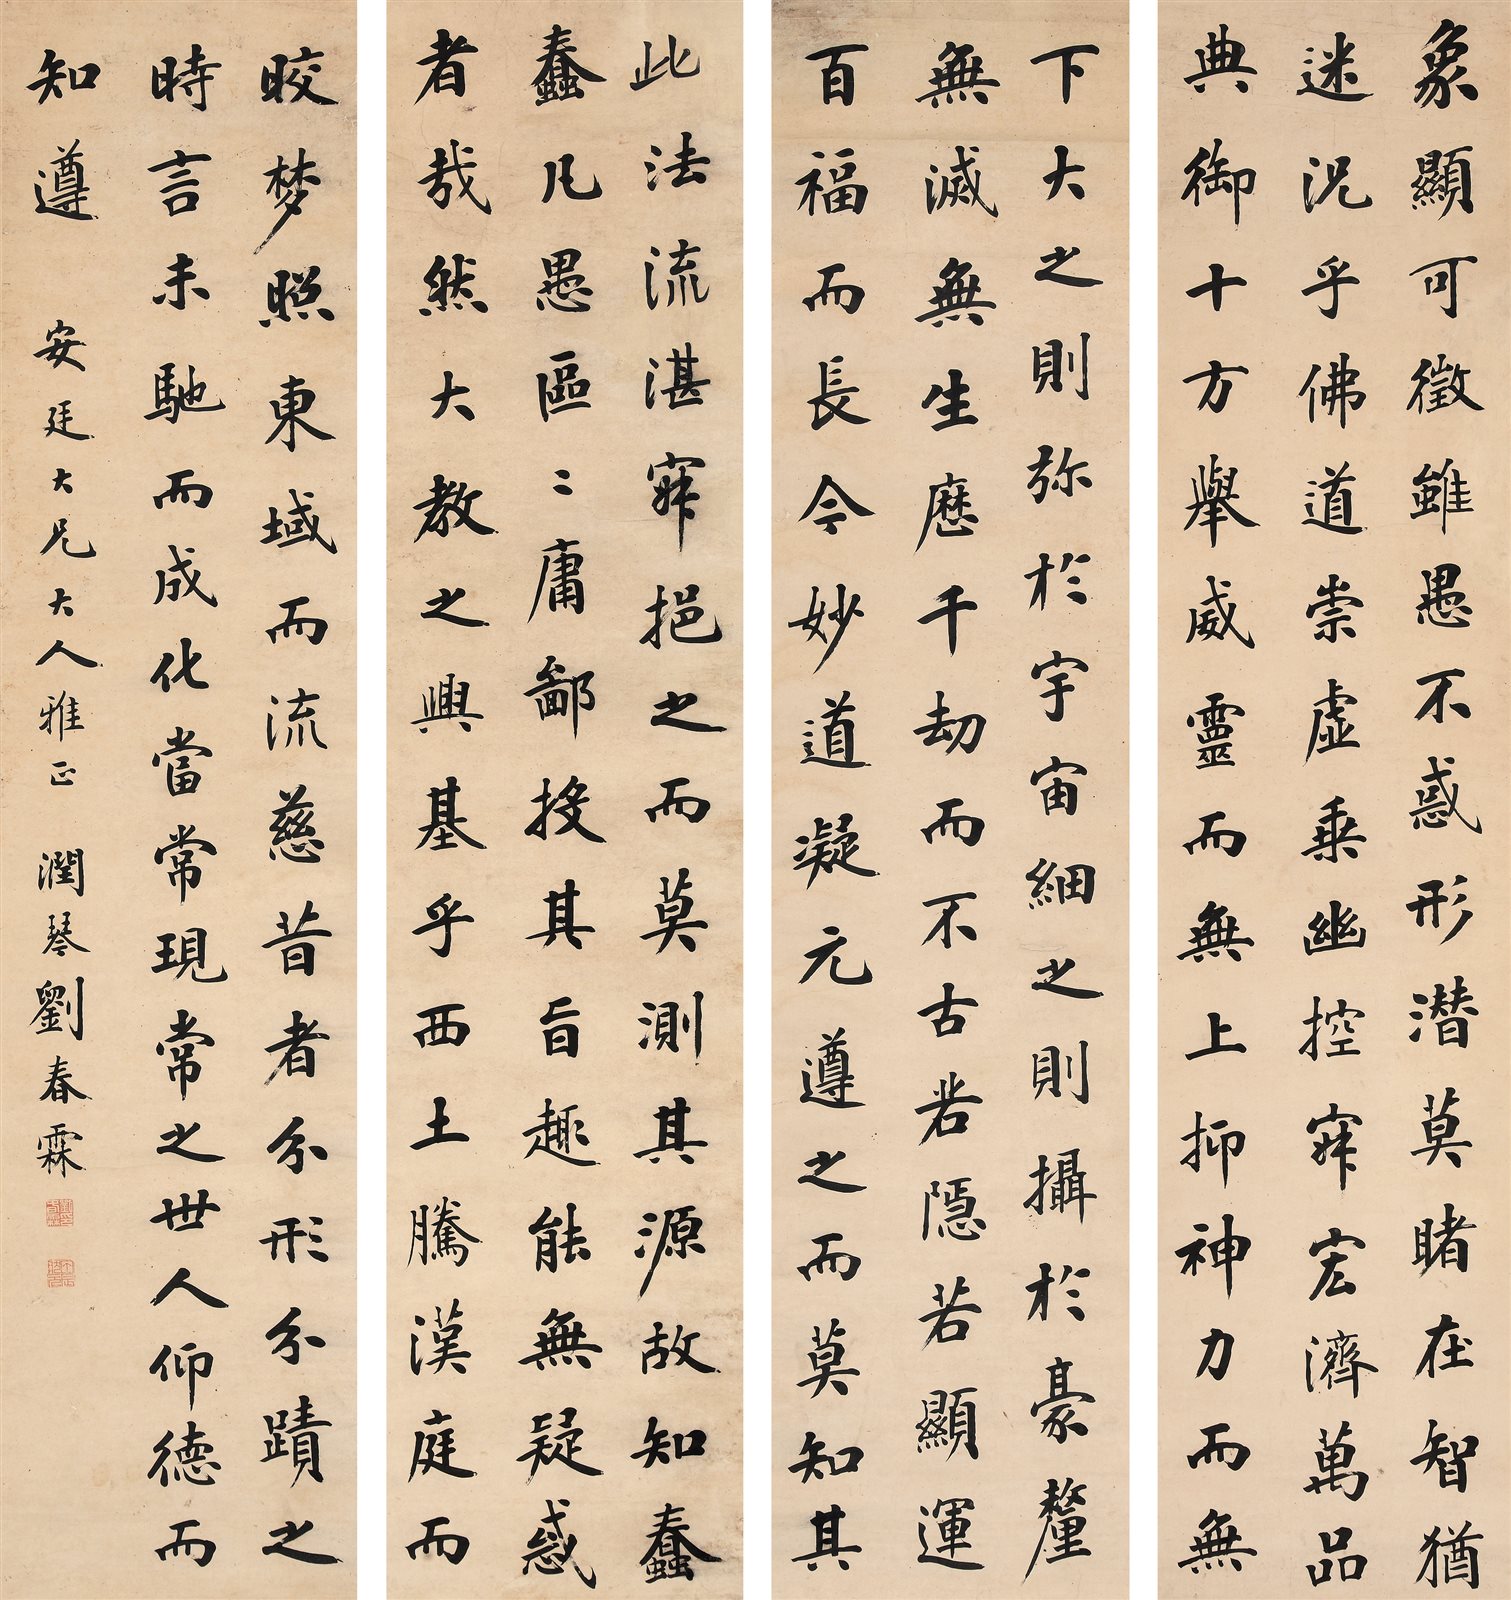 象顯可徵雖愚不惑形潜莫睹在智猶
迷況乎佛道崇虛乘幽控寂宏濟萬品
典御十方舉威靈而無上抑神力而無
下大之則弥於宇宙細之則攝於豪釐
無滅無生歷千劫而不古若隱若顯運
百福而長今妙道凝元遵之而莫知其
此法流湛寂挹之而莫測其源故知蠢
蠢凡愚區〻庸鄙投其旨趣能無疑惑
者哉然大教之興基乎西土騰漢庭而
皎梦照東域而流慈昔者分形分蹟之
時言未馳而成化當常現常之世人仰德而
知遵 安廷大兄大人雅正 潤琴劉春霖